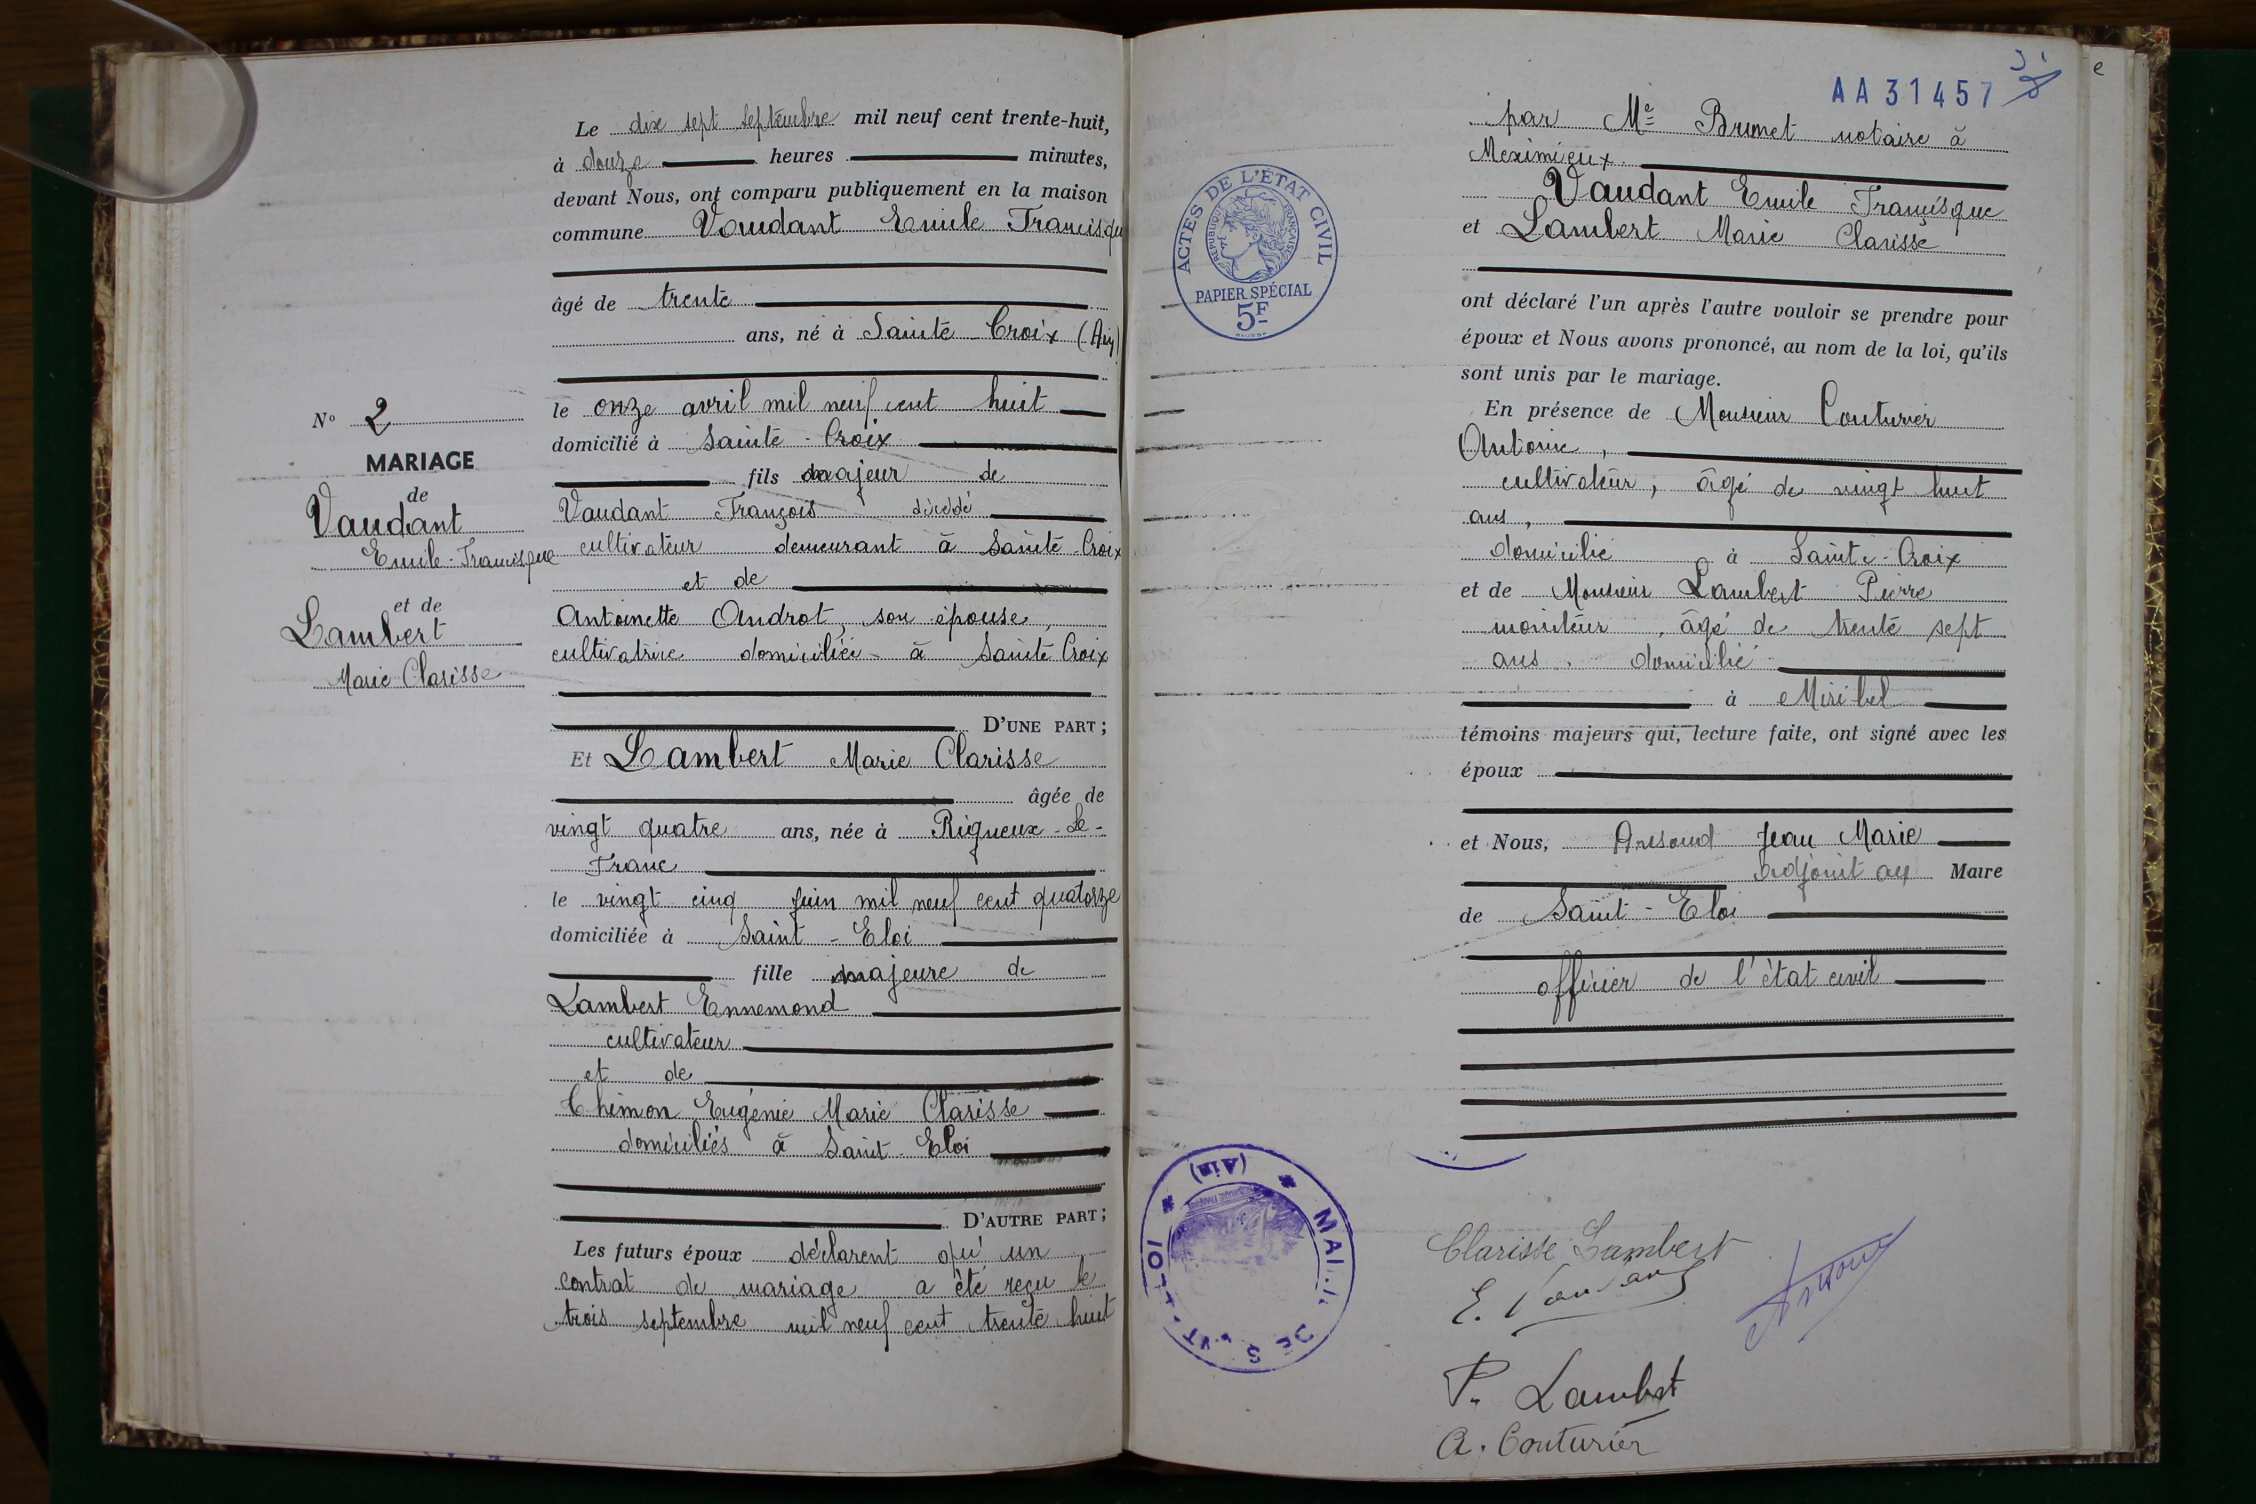 Le dix sept septembre mil neuf cent trente-huit,
à douze heures minutes,
devant Nous, ont comparu publiquement en la maison
commune Vaudant Emile Francisque
âgé de trente
ans, né à Sainte-Croix (Ain)
le onze avril mil neuf cent huit
domicilié à Sainte-Croix
fils majeur de
Vaudant François décédé
cultivateur demeurant à Sainte-Croix
et de
Antoinette Androt, son épouse,
cultivatrice domiciliée à Sainte Croix
D'UNE PART;
Et Lambert Marie Clarisse
âgée de
vingt quatre ans, née à Rigneux-Le-
Franc
le vingt cinq juin mil neuf cent quatorze
domiciliée à Saint-Eloi
fille majeure de
Lambert Ennemond
cultivateur
et de
Thimon Eugénie Marie Clarisse
domiciliés à Saint Eloi
D'AUTRE PART;
Les futurs époux déclarent qu'un
contrat de mariage a été reçu le
trois septembre mil neuf cent trente huit
N° 2
MARIAGE
de
Vaudant
Emile-Francisque
et de
Lambert
Marie Clarisse
AA31457
par Me Brunet notaire à
Meximieux
Vaudant Emile Francisque
et Lambert Marie Clarisse
ont déclaré l'un après l'autre vouloir se prendre pour
époux et Nous avons prononcé, au nom de la loi, qu'ils
sont unis par le mariage.
En présence de Monsieur Couturier
Antoine,
cultivateur, âgé de vingt huit
ans,
domicilié à Sainte-Croix
et de Monsieur Lambert Pierre
moniteur, âgé de trente sept
ans, domicilié
à Miribel
témoins majeurs qui, lecture faite, ont signé avec les
époux
et Nous, Jean Marie
adjoint au Maire
de Saint-Eloi
officier de l'état civil
ACTES DE L'ÉTAT CIVIL
RÉPUBLIQUE FRANÇAISE
PAPIER SPÉCIAL
5F
(Ain)
Clarisse Lambert
P. Lambert
A. Couturier